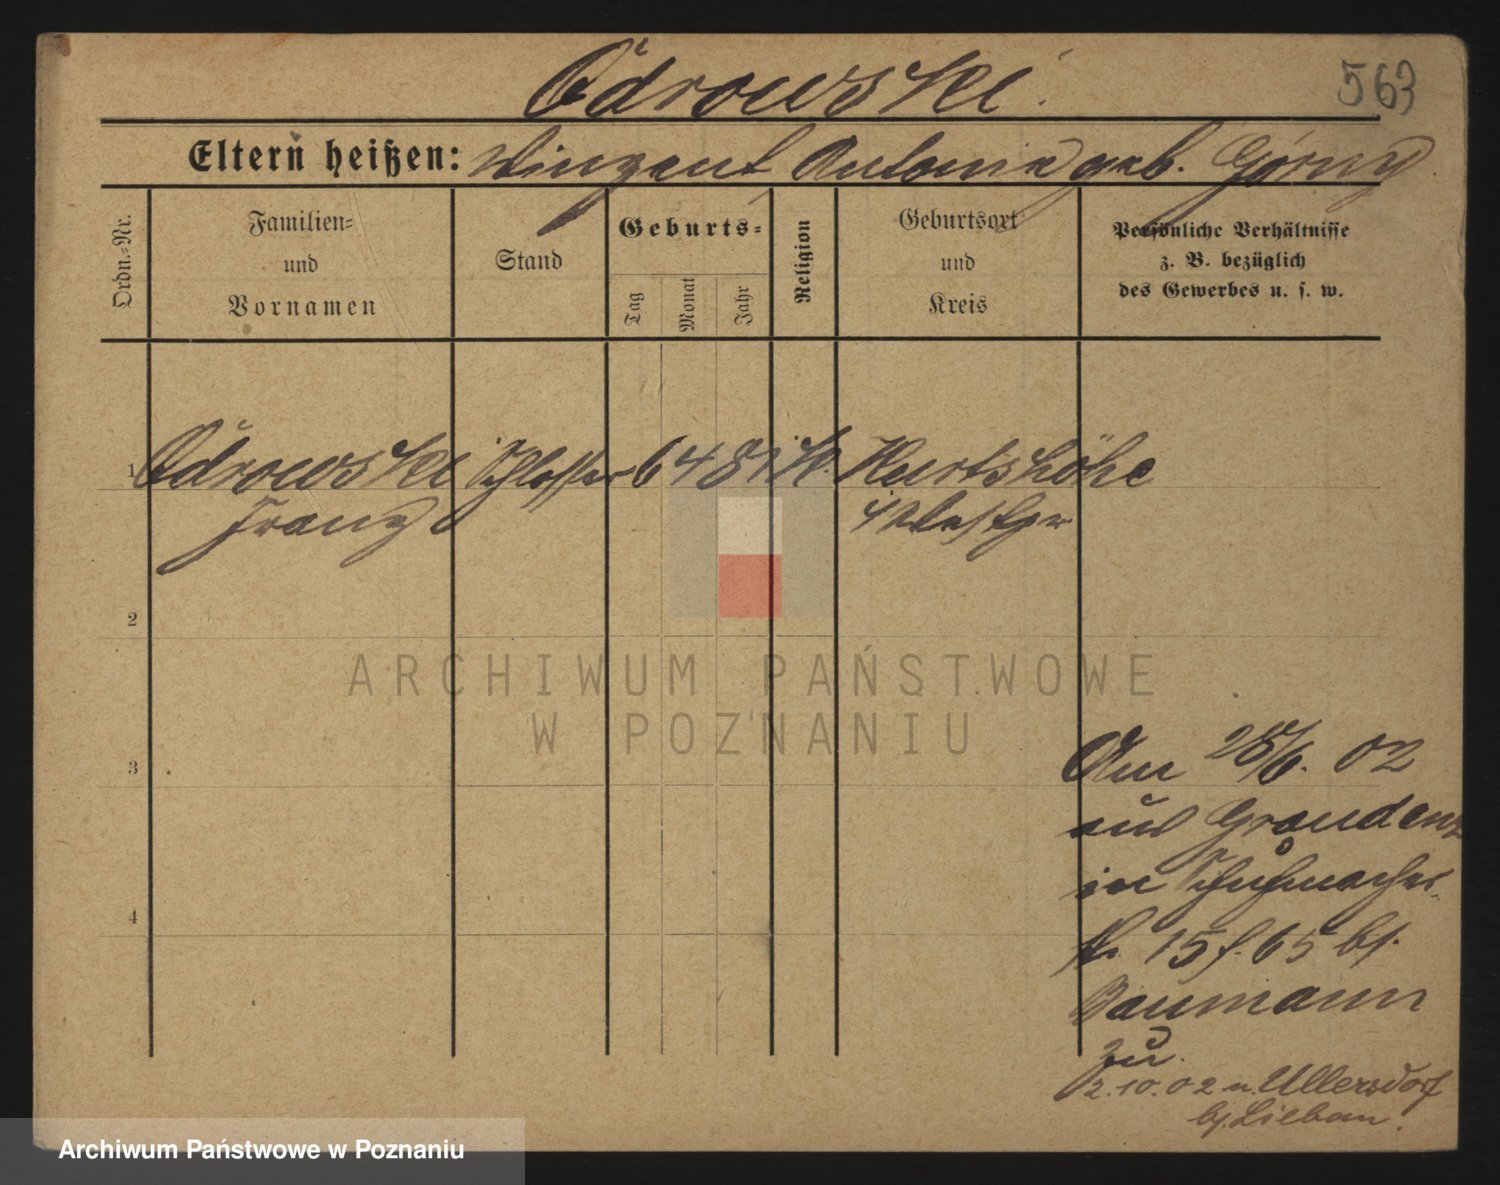 Odrowski.
563
Eltern heißen: Vinzent Antonie geb. Górny
Ordn.-Nr.
Familien-
und
Vornamen
Stand
Geburts-
Tag
Monat
Jahr
Religion
Geburtsort
und
Kreis
Persönliche Verhältnisse
z. B. bezüglich
des Gewerbes u. s. w.
1 Odrowski Schlosser 6 4 81 k. Kurtshöhe
Franz i Westpr
2
3
4
Am 28/6. 02
aus Graudenz
in Schuhmacher
str. 15 f. 65 bj.
Baumann
zu.
2.10.02 n. Ullersdorf
bj. Liebau.
ARCHIWUM PAŃSTWOWE
W POZNANIU
Archiwum Państwowe w Poznaniu